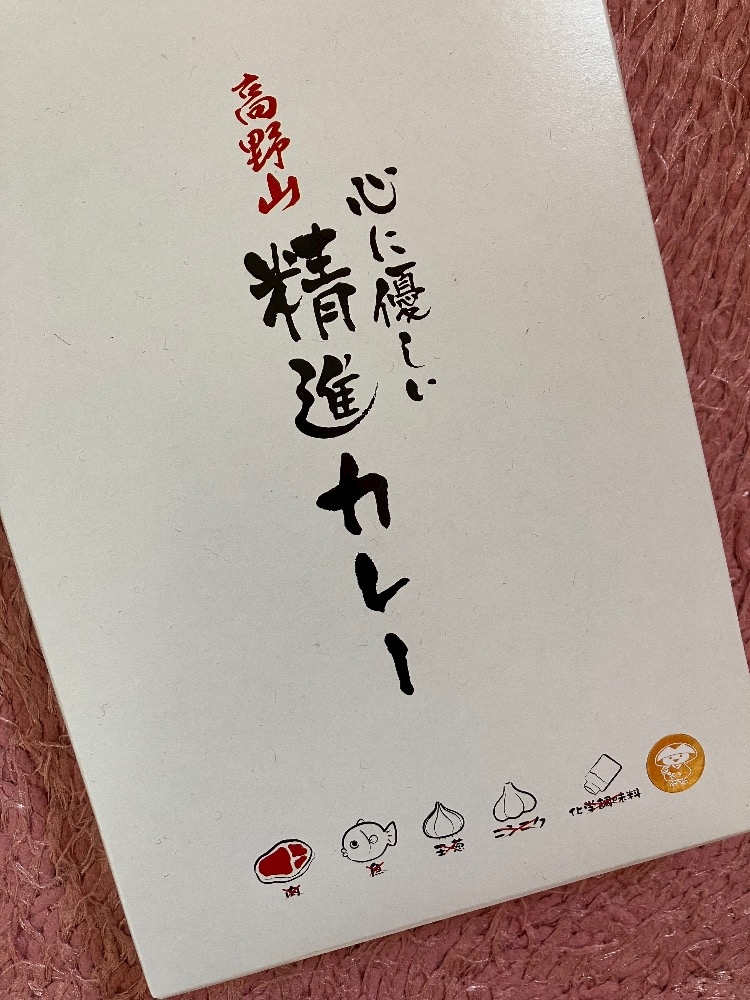 心に優しい
高野山
精進カレー
肉
魚
玉葱
ニンニク
化学調味料